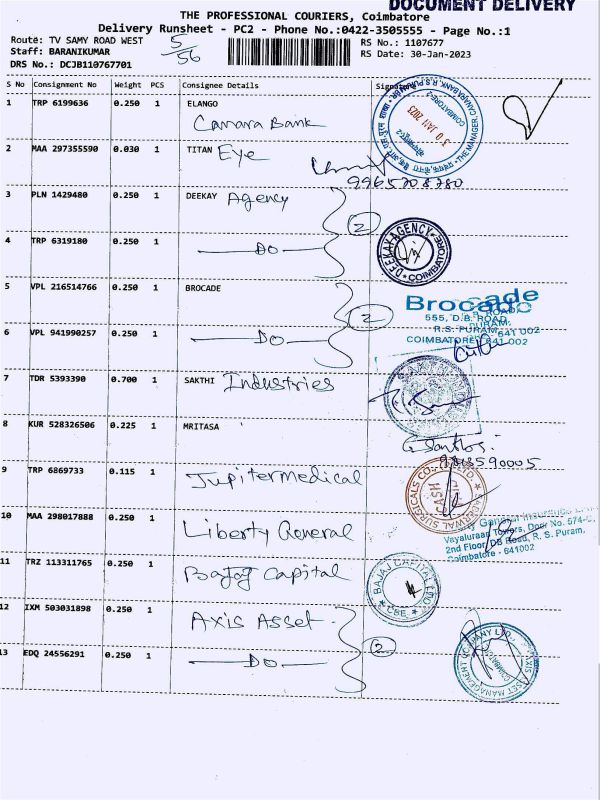 DOCUMENT DELIVERY
THE PROFESSIONAL COURIERS, Coimbatore
Delivery Runsheet - PC2 - Phone No.:0422-3505555 - Page No.:1
Route: TV SAMY ROAD WEST
5/56
RS No.: 1107677
Staff: BARANIKUMAR
RS Date: 30-Jan-2023
DRS No.: DCJB110767701
S No Consignment No Weight PCS Consignee Details Signature
1 TRP 6199636 0.250 1 ELANGO
Canara Bank
30 JAN 2023
COIMBATORE-2
THE MANAGER, CANARA BANK, R S PURAM
2 MAA 297355590 0.030 1 TITAN Eye
9965708780
3 PLN 1429480 0.250 1 DEEKAY Agency
2
4 TRP 6319180 0.250 1 Do
DEEKAY AGENCY
COIMBATORE
5 VPL 216514766 0.250 1 BROCADE
2
Brocade
555, D.B. ROAD,
R.S. PURAM,
COIMBATORE - 641 002
6 VPL 941990257 0.250 1 Do
7 TDR 5393390 0.700 1 SAKTHI Industries
8 KUR 528326506 0.225 1 MRITASA
G. Santhos
9 TRP 6869733 0.115 1 Jupitermedical
CASH
10 MAA 298017888 0.250 1 Liberty General
Vayaluraan Towers, Door No. 574-C,
2nd Floor, DB Road, R. S. Puram,
Coimbatore - 641002
11 TRZ 113311765 0.250 1 Bajaj Capital
BAJAJ CAPITAL LTD
CBE
12 IXM 503031898 0.250 1 Axis Asset
2
13 EDQ 24556291 0.250 1 Do
AXIS ASSET MANAGEMENT COMPANY LTD.
COIMBATORE